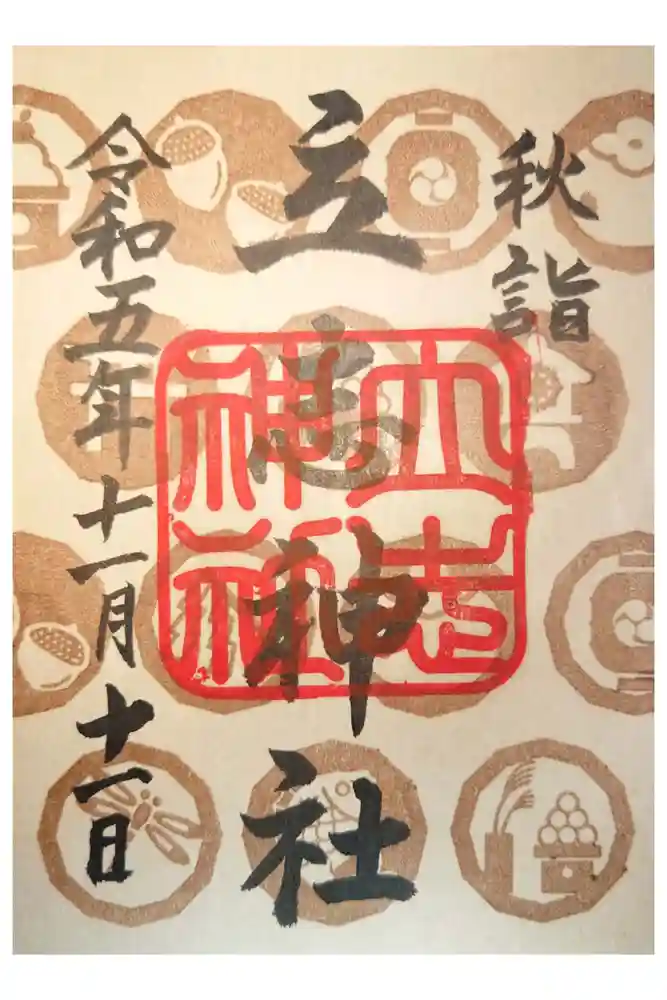 秋詣
立志神社
立志
神社
令和五年十一月十一日